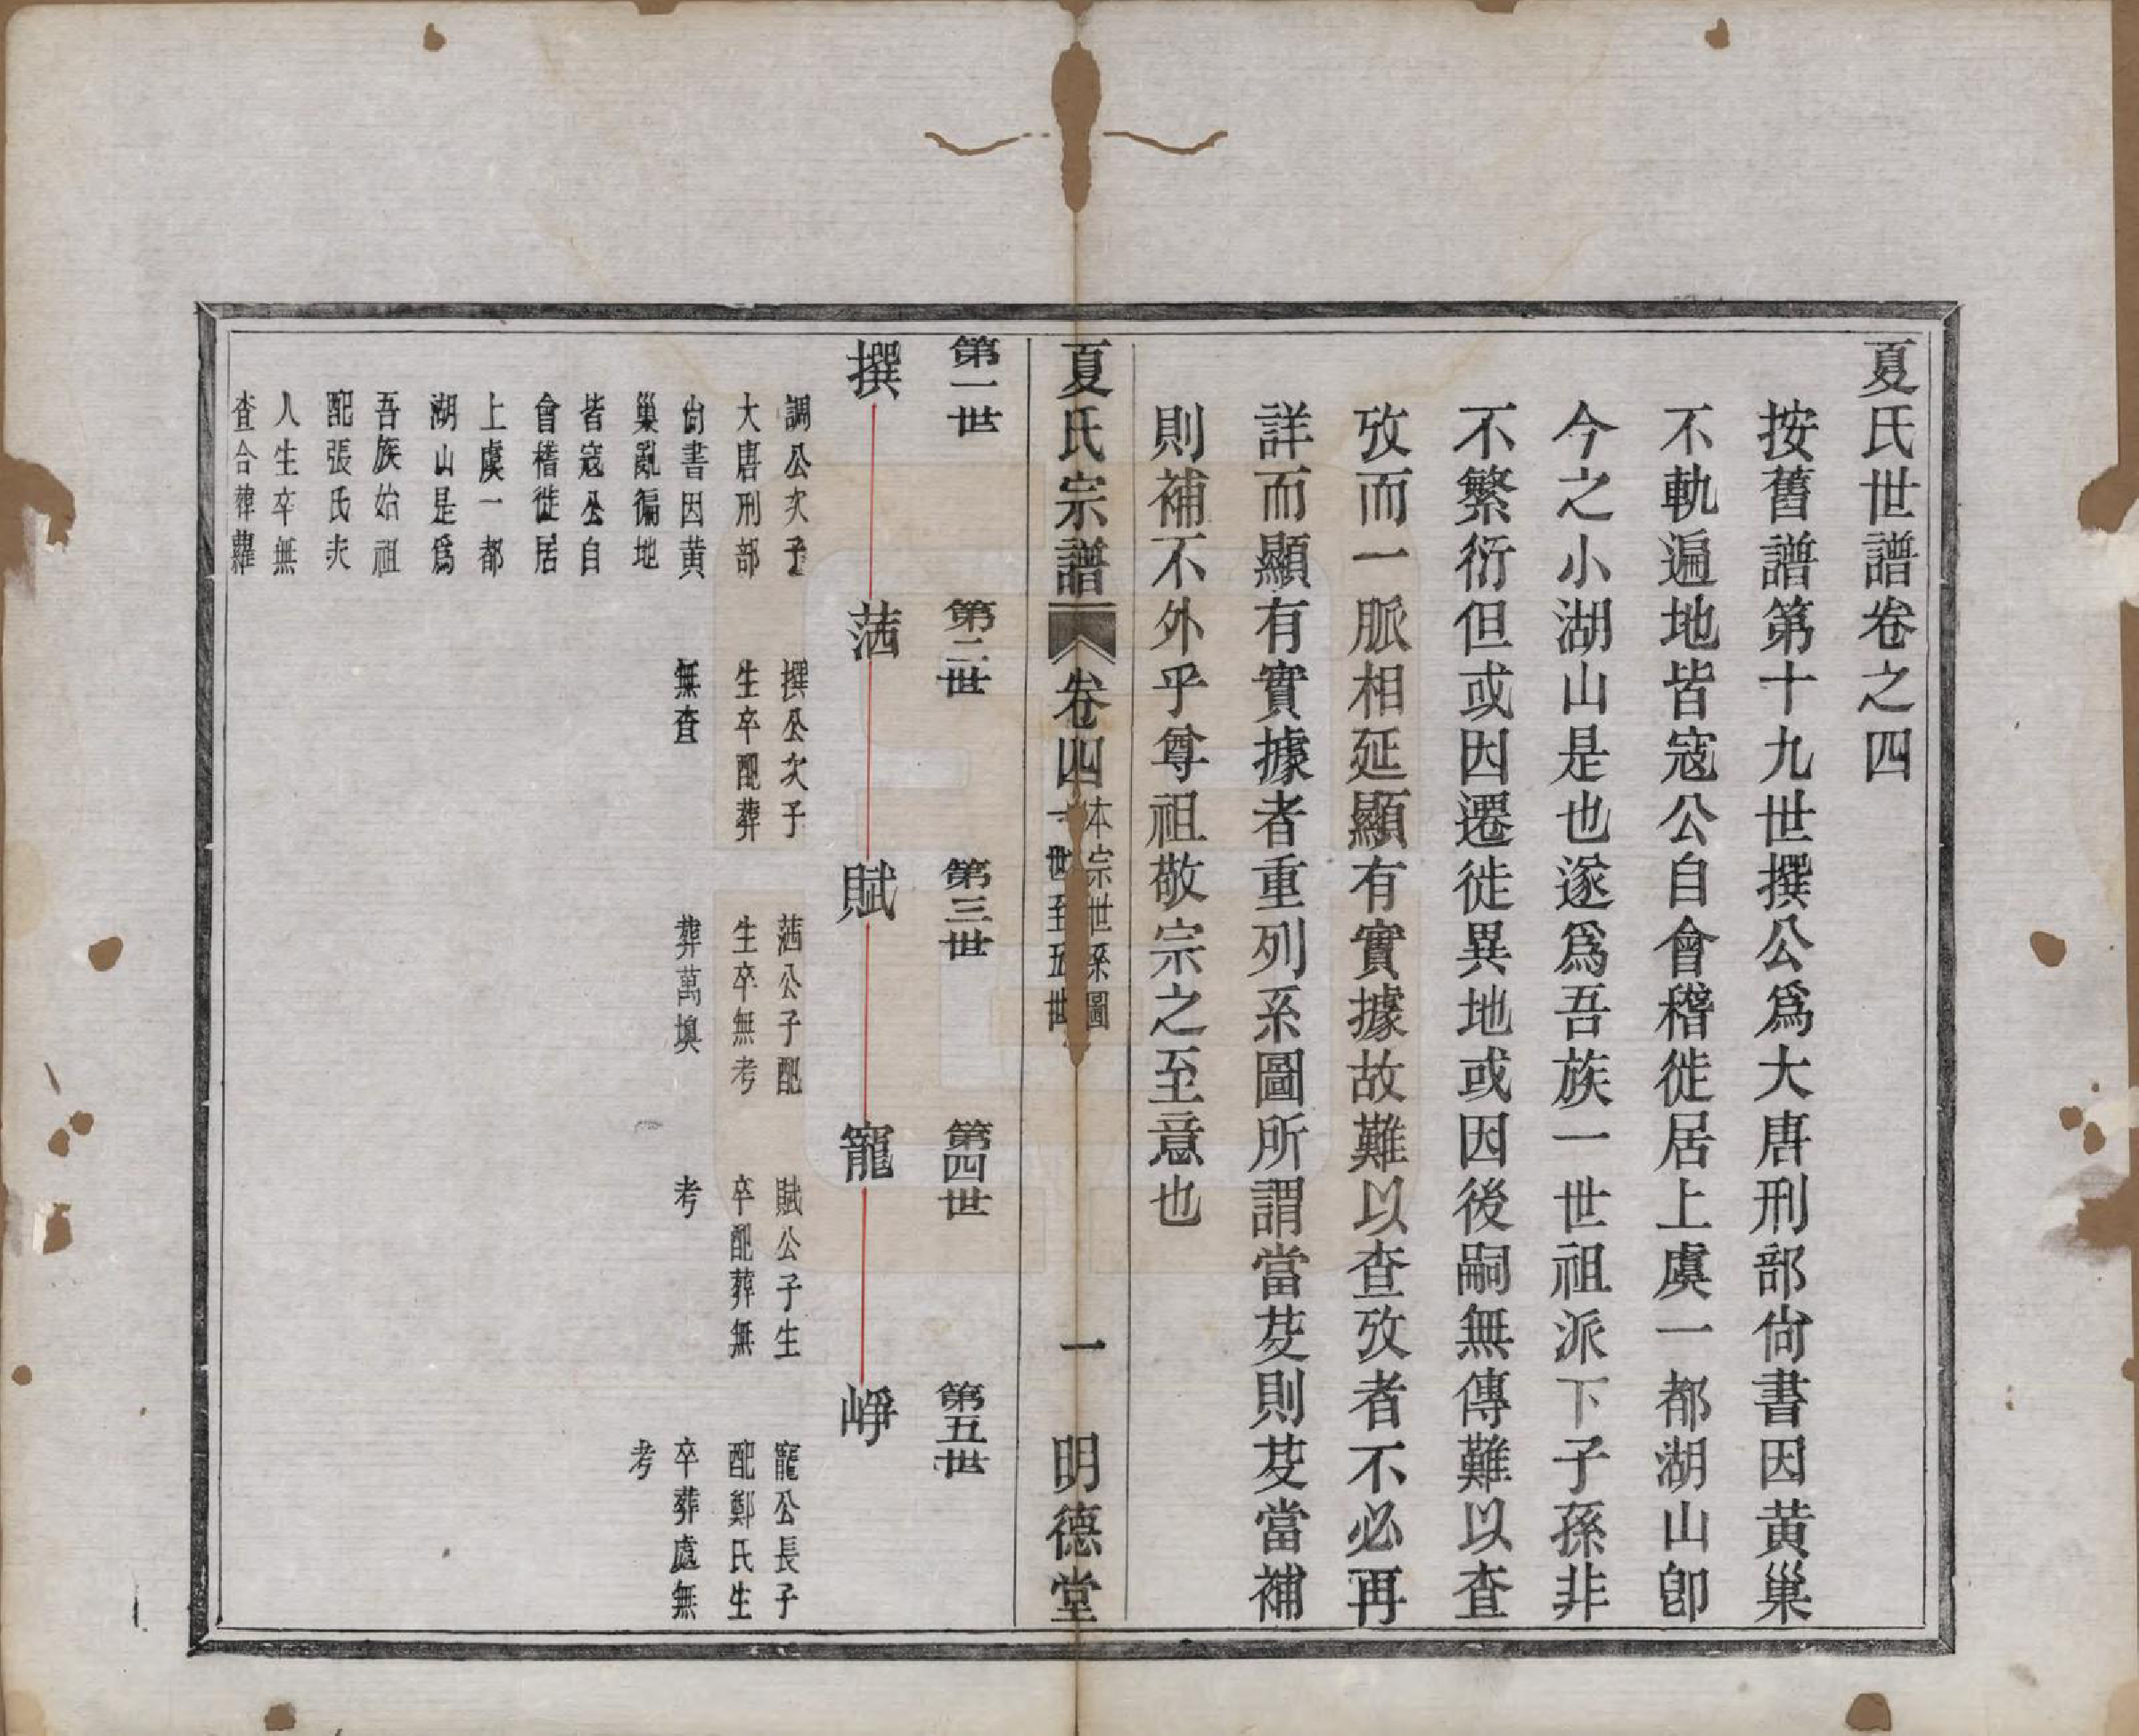 夏氏世譜卷之四
按舊譜第十九世撰公爲大唐刑部尙書因黄巢
不軌遍地皆寇公自會稽徙居上虞一都湖山卽
今之小湖山是也遂爲吾族一世祖派下子孫非
不繁衍但或因遷徙異地或因後嗣無傳難以查
攷而一脈相延顯有實據故難以查攷者不必再
詳而顯有實據者重列系圖所謂當芟則芟當補
則補不外乎尊祖敬宗之至意也
夏氏宗譜
卷四
本宗世系圖
一世至五世
一
明德堂
第一世
第二世
第三世
第四世
第五世
撰
調公次子
大唐刑部
尙書因黄
巢亂徧地
皆寇公自
會稽徙居
上虞一都
湖山是爲
吾族始祖
配張氏夫
人生卒無
查合葬蘿
莤
撰公次子
生卒配葬
無查
賦
莤公子配
生卒無考
葬萬墺
寵
賦公子生
卒配葬無
考
崢
寵公長子
配鄭氏生
卒葬處無
考